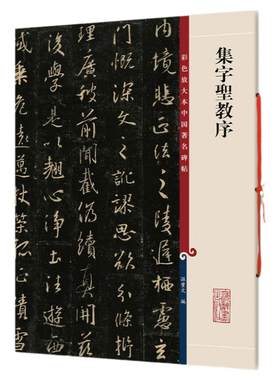 集字聖教序
彩色放大本中国著名碑帖
孫寶文 編
內境悲正法之陵遲栖慮玄
門慨深文之訛謬思欲分條析
理廣彼前聞截偽續真開茲
後學是以翹心淨土往遊西
域乘危遠邁杖策孤征積雪